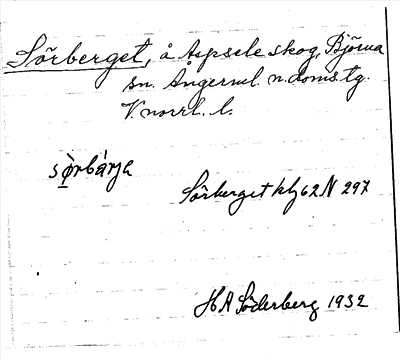 Sörberget, å Aspsele skog, Björna
sn. Ångerml. n. doms. tg.
V. norrl. l.
sø̀rbárjə
Sörberget klg 62 N 297
H A Söderberg 1932